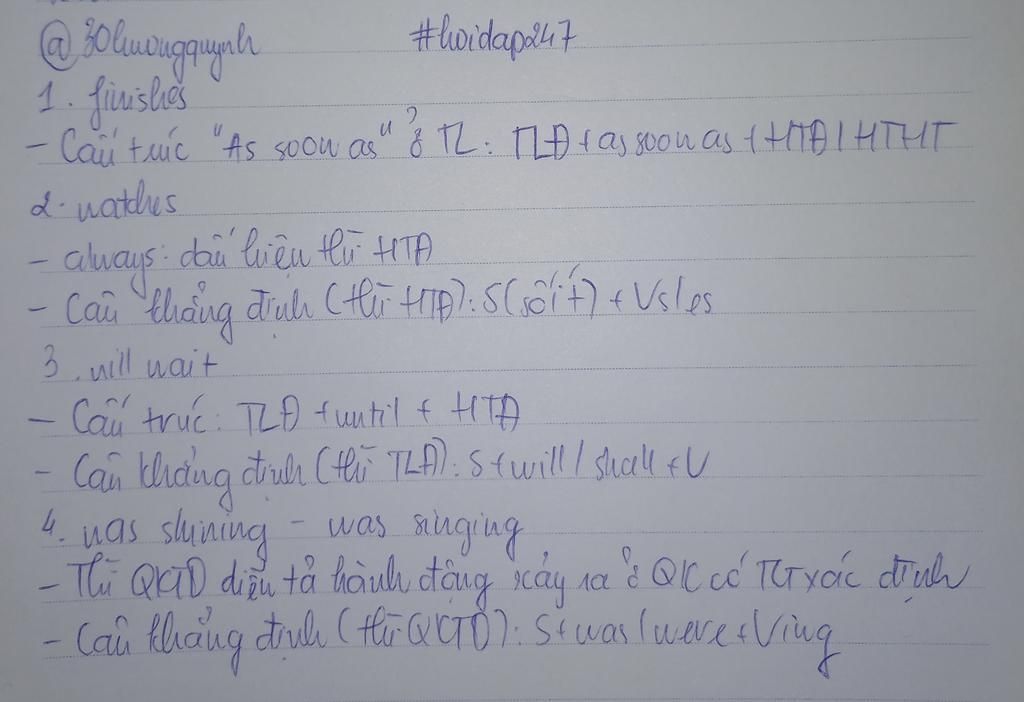 @30huongquynh #hoidap247
1. finishes
- Cấu trúc "As soon as" ở TL: TLĐ + as soon as + HTĐ / HTHT
2. watches
- always: dấu hiệu thì HTĐ
- Câu khẳng định (thì HTĐ): S (số ít) + Vs/es
3. will wait
- Cấu trúc: TLĐ + until + HTĐ
- Câu khẳng định (thì TLĐ): S + will / shall + V
4. was shining - was singing
- Thì QKTD diễn tả hành động xảy ra ở QK có TG xác định
- Câu khẳng định (thì QKTD): S + was / were + Ving